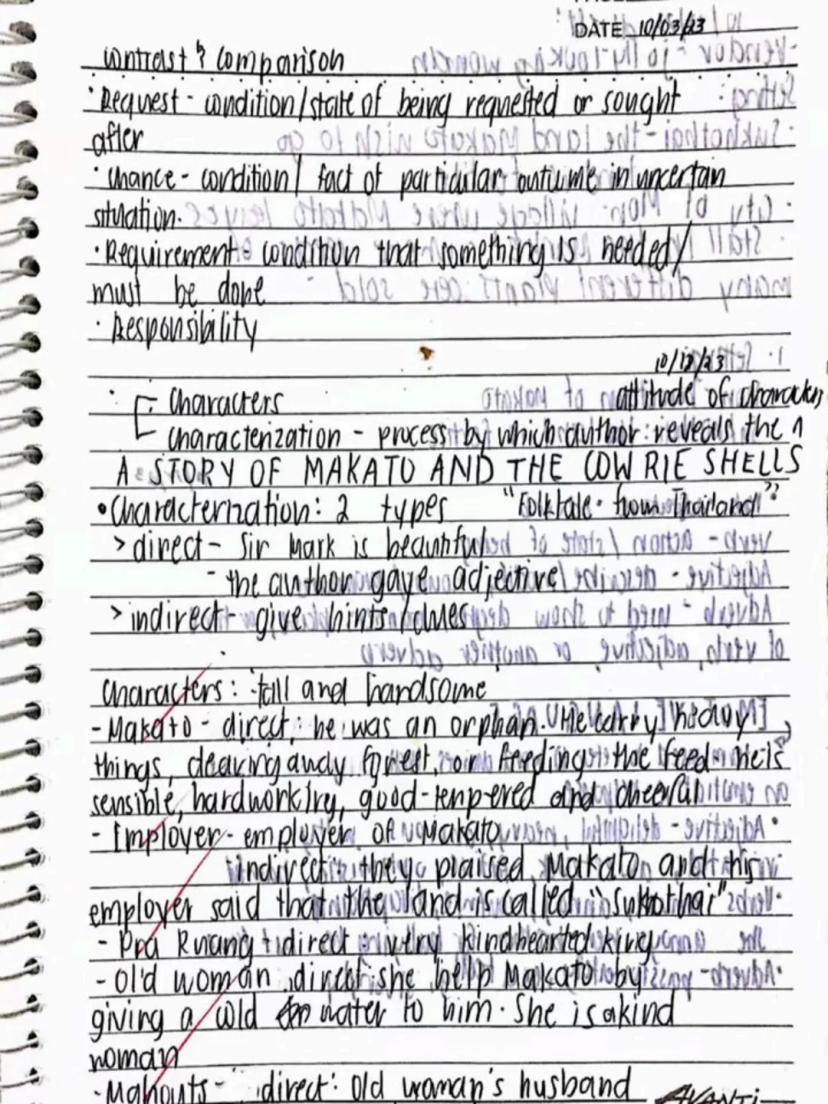 DATE 10/03/23
contrast & comparison
• Request - condition/state of being requested or sought
after
• chance - condition/ fact of particular outcome in uncertain
situation.
• Requirement - condition that something is needed/
must be done
• Responsibility
Characters
attitude of character
characterization - process by which author reveals the ^
A STORY OF MAKATO AND THE COWRIE SHELLS
• Characterization: 2 types "Folktale from Thailand"
> direct - Sir Mark is beautiful
- the author gave adjective
> indirect - give hints/clues
Characters: tall and handsome
- Makato - direct: he was an orphan. He carry heavy
things, clearing away forest, or feeding the feed. He is
sensible, hardworking, good-tempered and cheerful
- Employer - employer of Makato
indirect: they praised Makato and his
employer said that the land is called "Sukhothai"
- Pra Ruang direct: very kindhearted king
- Old woman direct: she help Makato by
giving a cold water to him. She is a kind
woman
- Mahouts - direct: Old woman's husband
AVANTI